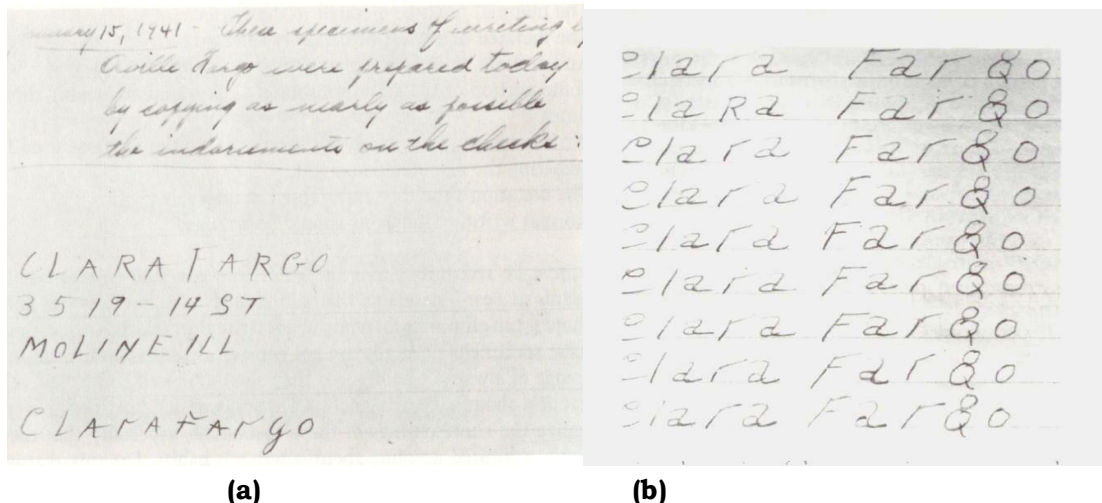 15, 1941 - These specimens of writing
Orville Fargo were prepared today
by copying as nearly as possible
the indorsements on the checks :
CLARA FARGO
3519-14 ST
MOLINE ILL
ClArAFArgo
(a)
Clara Fargo
ClaRa Fargo
Clara Fargo
Clara Fargo
Clara Fargo
Clara Fargo
Clara Fargo
Clara Fargo
Clara Fargo
(b)